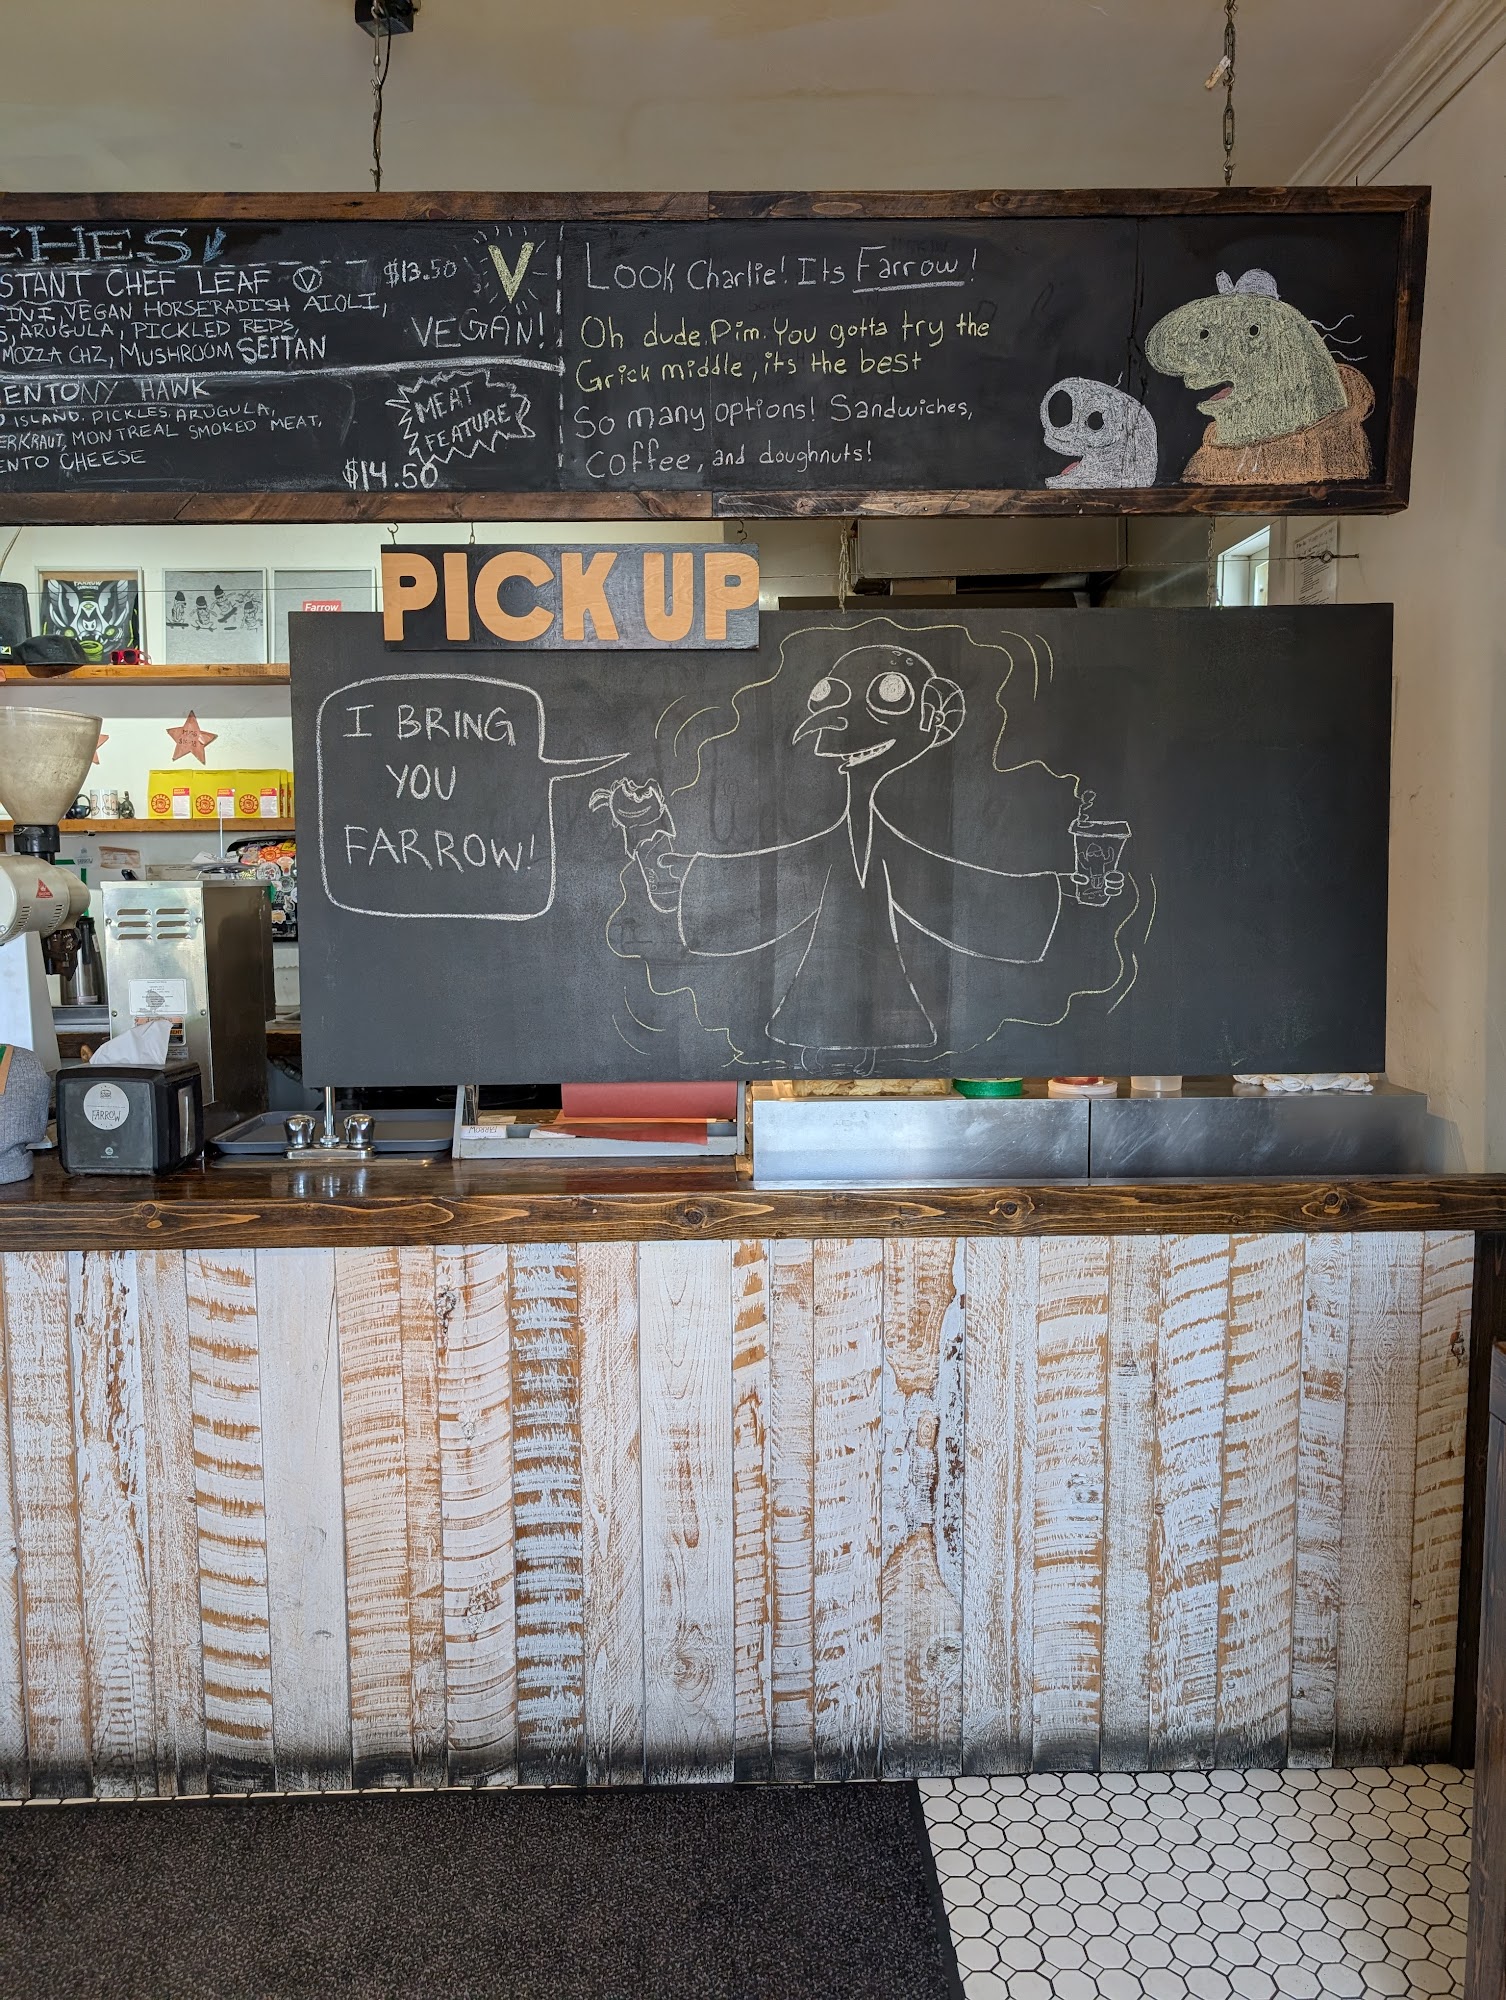 CHES
STANT CHEF LEAF V $13.50
INI, VEGAN HORSERADISH AIOLI,
S, ARUGULA, PICKLED REDS,
MOZZA CHZ, MUSHROOM SEITAN
V
VEGAN!
ENTONY HAWK
ISLAND. PICKLES, ARUGULA,
ERKRAUT, MONTREAL SMOKED MEAT,
ENTO CHEESE
MEAT
FEATURE
$14.50
Look Charlie! Its Farrow!
Oh dude. Pim. You gotta try the
Grick middle, its the best
So many options! Sandwiches,
coffee, and doughnuts!
PICK UP
Farrow
I BRING
YOU
FARROW!
FARROW